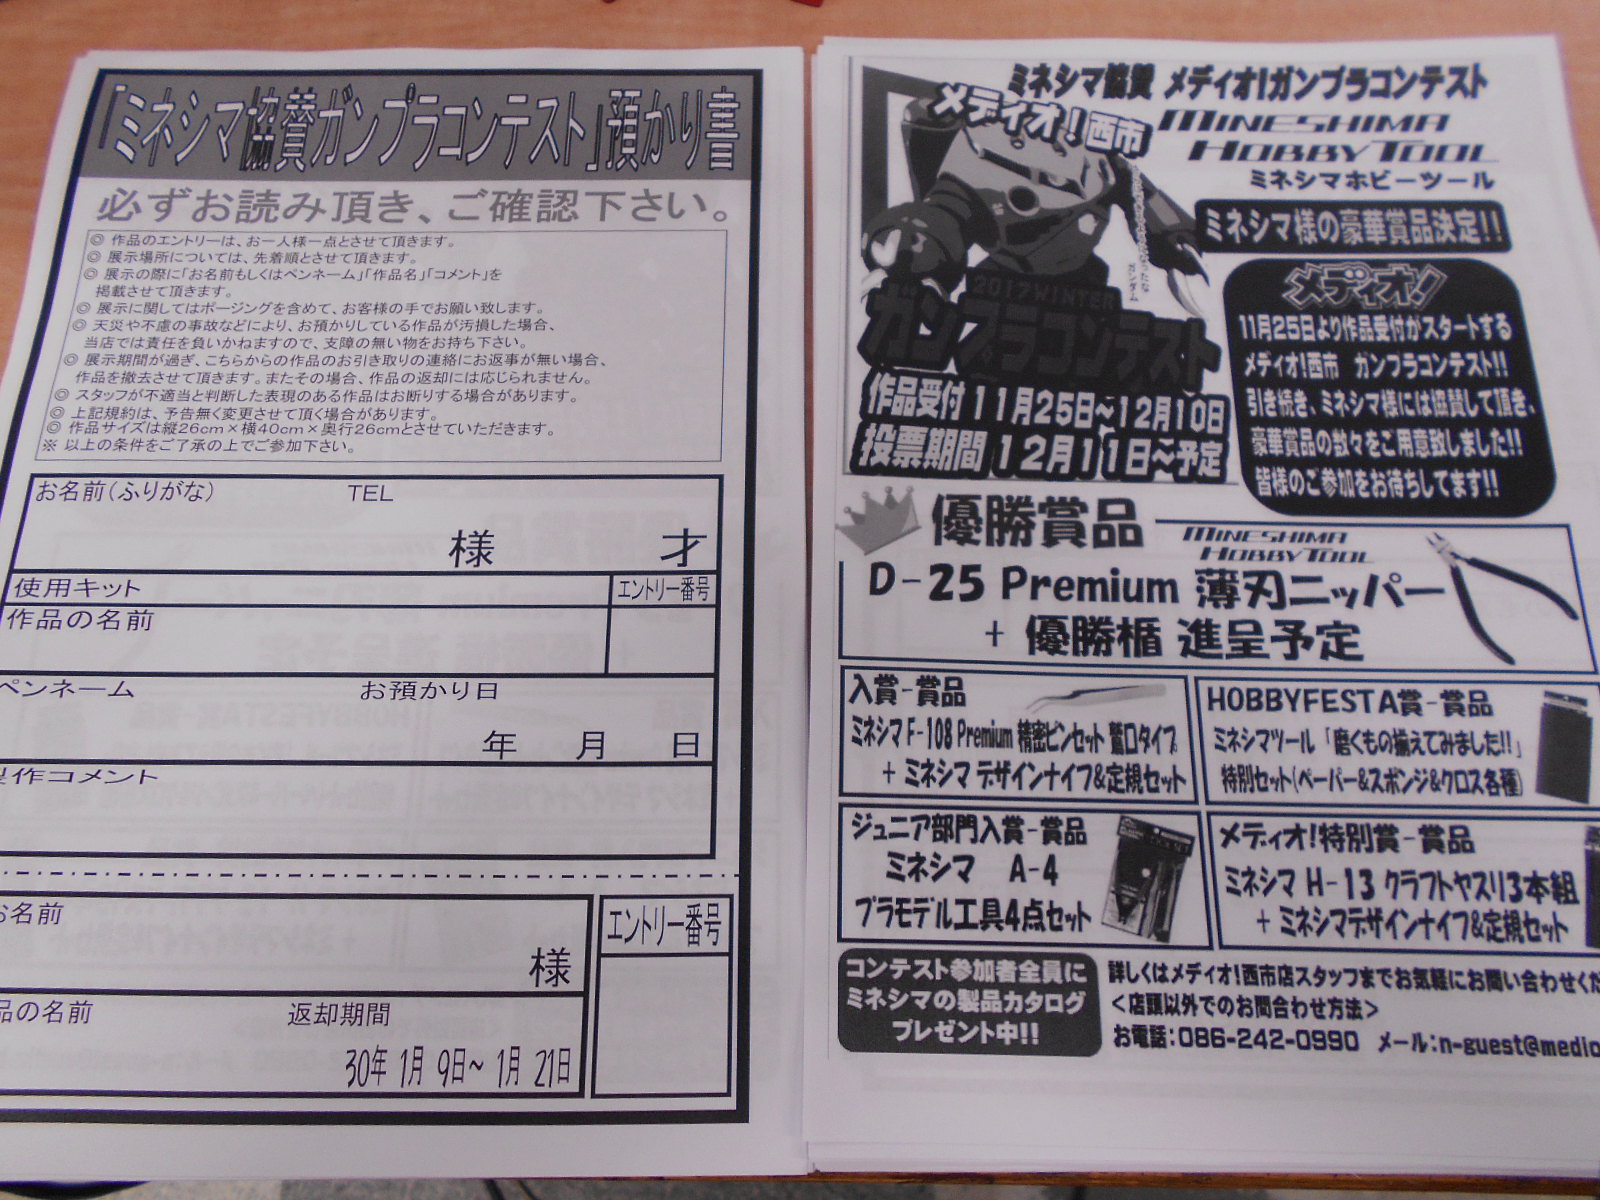 「ミネシマ協賛ガンプラコンテスト」預かり書
必ずお読み頂き、ご確認下さい。
◎ 作品のエントリーは、お一人様一点とさせて頂きます。
◎ 展示場所については、先着順とさせて頂きます。
◎ 展示の際に「お名前もしくはペンネーム」「作品名」「コメント」を
掲載させて頂きます。
◎ 展示に関してはポージングを含めて、お客様の手でお願い致します。
◎ 天災や不慮の事故などにより、お預かりしている作品が汚損した場合、
当店では責任を負いかねますので、支障の無い物をお持ち下さい。
◎ 展示期間が過ぎ、こちらからの作品のお引き取りの連絡にお返事が無い場合、
作品を撤去させて頂きます。またその場合、作品の返却には応じられません。
◎ スタッフが不適当と判断した表現のある作品はお断りする場合があります。
◎ 上記規約は、予告無く変更させて頂く場合があります。
◎ 作品サイズは縦26cm×横40cm×奥行26cmとさせていただきます。
※ 以上の条件をご了承の上でご参加下さい。
お名前(ふりがな) TEL
様 才
使用キット エントリー番号
作品の名前
ペンネーム お預かり日
年 月 日
製作コメント
お名前 エントリー番号
様
品の名前 返却期間
30年 1月 9日~ 1月 21日
ミネシマ協賛 メディオ!ガンプラコンテスト
メディオ!西市
MINESHIMA
HOBBY TOOL
ミネシマホビーツール
ミネシマ様の豪華賞品決定!!
2017WINTER
ガンプラコンテスト
作品受付 11月25日~12月10日
投票期間 12月11日~予定
メディオ!
11月25日より作品受付がスタートする
メディオ!西市 ガンプラコンテスト!!
引き続き、ミネシマ様には協賛して頂き、
豪華賞品の数々をご用意致しました!!
皆様のご参加をお待ちしてます!!
優勝賞品
MINESHIMA
HOBBY TOOL
D-25 Premium 薄刃ニッパー
+ 優勝楯 進呈予定
入賞-賞品
ミネシマ F-108 Premium 精密ピンセット 鷲口タイプ
+ ミネシマ デザインナイフ&定規セット
HOBBYFESTA賞-賞品
ミネシマツール「磨くもの揃えてみました!!」
特別セット(ペーパー&スポンジ&クロス各種)
ジュニア部門入賞-賞品
ミネシマ A-4
プラモデル工具4点セット
メディオ!特別賞-賞品
ミネシマ H-13 クラフトヤスリ3本組
+ ミネシマデザインナイフ&定規セット
コンテスト参加者全員に
ミネシマの製品カタログ
プレゼント中!!
詳しくはメディオ!西市店スタッフまでお気軽にお問い合わせくだ
<店頭以外でのお問合わせ方法>
お電話:086-242-0990 メール:n-guest@medio